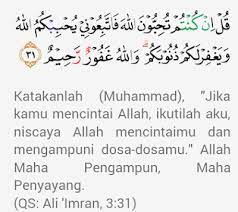 قُلْ إِنْ كُنْتُمْ تُحِبُّونَ اللَّهَ فَاتَّبِعُونِي يُحْبِبْكُمُ اللَّهُ
وَيَغْفِرْ لَكُمْ ذُنُوبَكُمْ ۗ وَاللَّهُ غَفُورٌ رَحِيمٌ ٣١
Katakanlah (Muhammad), "Jika
kamu mencintai Allah, ikutilah aku,
niscaya Allah mencintaimu dan
mengampuni dosa-dosamu." Allah
Maha Pengampun, Maha
Penyayang.
(QS: Ali 'Imran, 3:31)